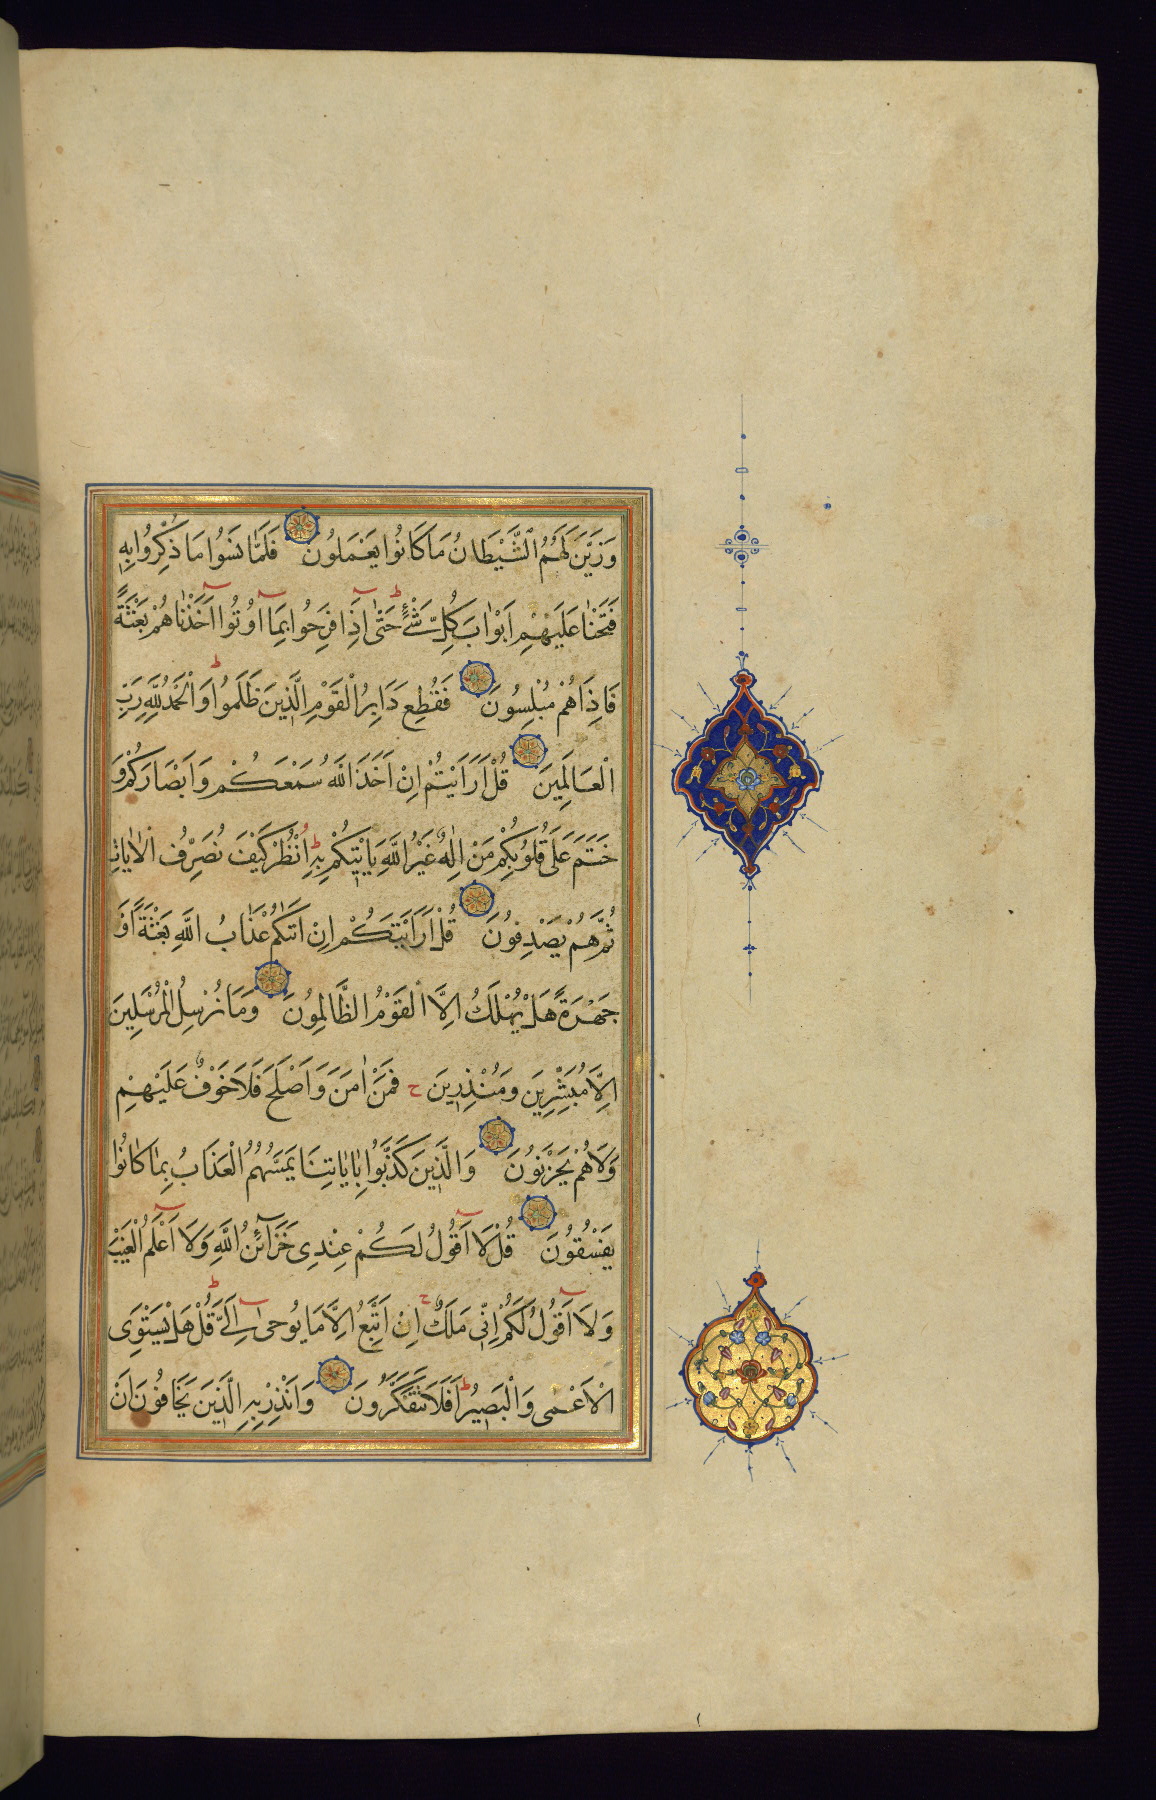 وَزَيَّنَ لَهُمُ الشَّيْطَانُ مَا كَانُوا يَعْمَلُونَ فَلَمَّا نَسُوا مَا ذُكِّرُوا بِهِ
فَتَحْنَا عَلَيْهِمْ اَبْوَابَ كُلِّ شَيْءٍ ط حَتّٰى اِذَا فَرِحُوا بِمَا اُوتُوا اَخَذْنَاهُمْ بَغْتَةً
فَاِذَا هُمْ مُبْلِسُونَ فَقُطِعَ دَابِرُ الْقَوْمِ الَّذِينَ ظَلَمُوا ط وَالْحَمْدُ لِلّٰهِ رَبِّ
الْعَالَمِينَ قُلْ اَرَاَيْتُمْ اِنْ اَخَذَ اللّٰهُ سَمْعَكُمْ وَاَبْصَارَكُمْ وَ
خَتَمَ عَلٰى قُلُوبِكُمْ مَنْ اِلٰهٌ غَيْرُ اللّٰهِ يَاْتِيكُمْ بِهِ ط اُنْظُرْ كَيْفَ نُصَرِّفُ الْاٰيَاتِ
ثُمَّ هُمْ يَصْدِفُونَ قُلْ اَرَاَيْتَكُمْ اِنْ اَتٰىكُمْ عَذَابُ اللّٰهِ بَغْتَةً اَوْ
جَهْرَةً هَلْ يُهْلَكُ اِلَّا الْقَوْمُ الظَّالِمُونَ وَمَا نُرْسِلُ الْمُرْسَلِينَ
اِلَّا مُبَشِّرِينَ وَمُنْذِرِينَ ح فَمَنْ اٰمَنَ وَاَصْلَحَ فَلَا خَوْفٌ عَلَيْهِمْ
وَلَا هُمْ يَحْزَنُونَ وَالَّذِينَ كَذَّبُوا بِاٰيَاتِنَا يَمَسُّهُمُ الْعَذَابُ بِمَا كَانُوا
يَفْسُقُونَ قُلْ لَا اَقُولُ لَكُمْ عِنْدِى خَزَآئِنُ اللّٰهِ وَلَا اَعْلَمُ الْغَيْبَ
وَلَا اَقُولُ لَكُمْ اِنِّى مَلَكٌ ح اِنْ اَتَّبِعُ اِلَّا مَا يُوحٰى اِلَىَّ ط قُلْ هَلْ يَسْتَوِى
الْاَعْمٰى وَالْبَصِيرُ ط اَفَلَا تَتَفَكَّرُونَ وَاَنْذِرْ بِهِ الَّذِينَ يَخَافُونَ اَنْ